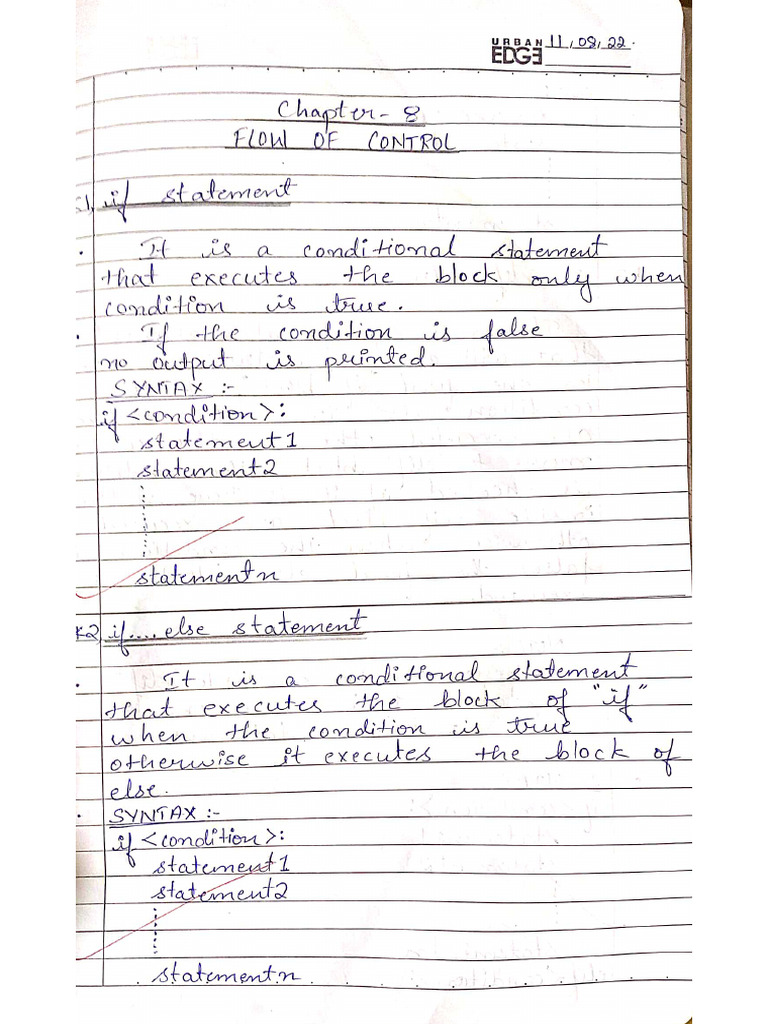 URBAN
EDGE 11,08,22.
Chapter- 8
FLOW OF CONTROL
1, if statement
. It is a conditional statement
that executes the block only when
condition is true.
. If the condition is false
no output is printed.
SYNTAX :-
if <condition>:
statement1
statement2
statementn
2) if.... else statement
. It is a conditional statement
that executes the block of "if"
when the condition is true
otherwise it executes the block of
else.
. SYNTAX :-
if <condition>:
statement1
statement2
statementn